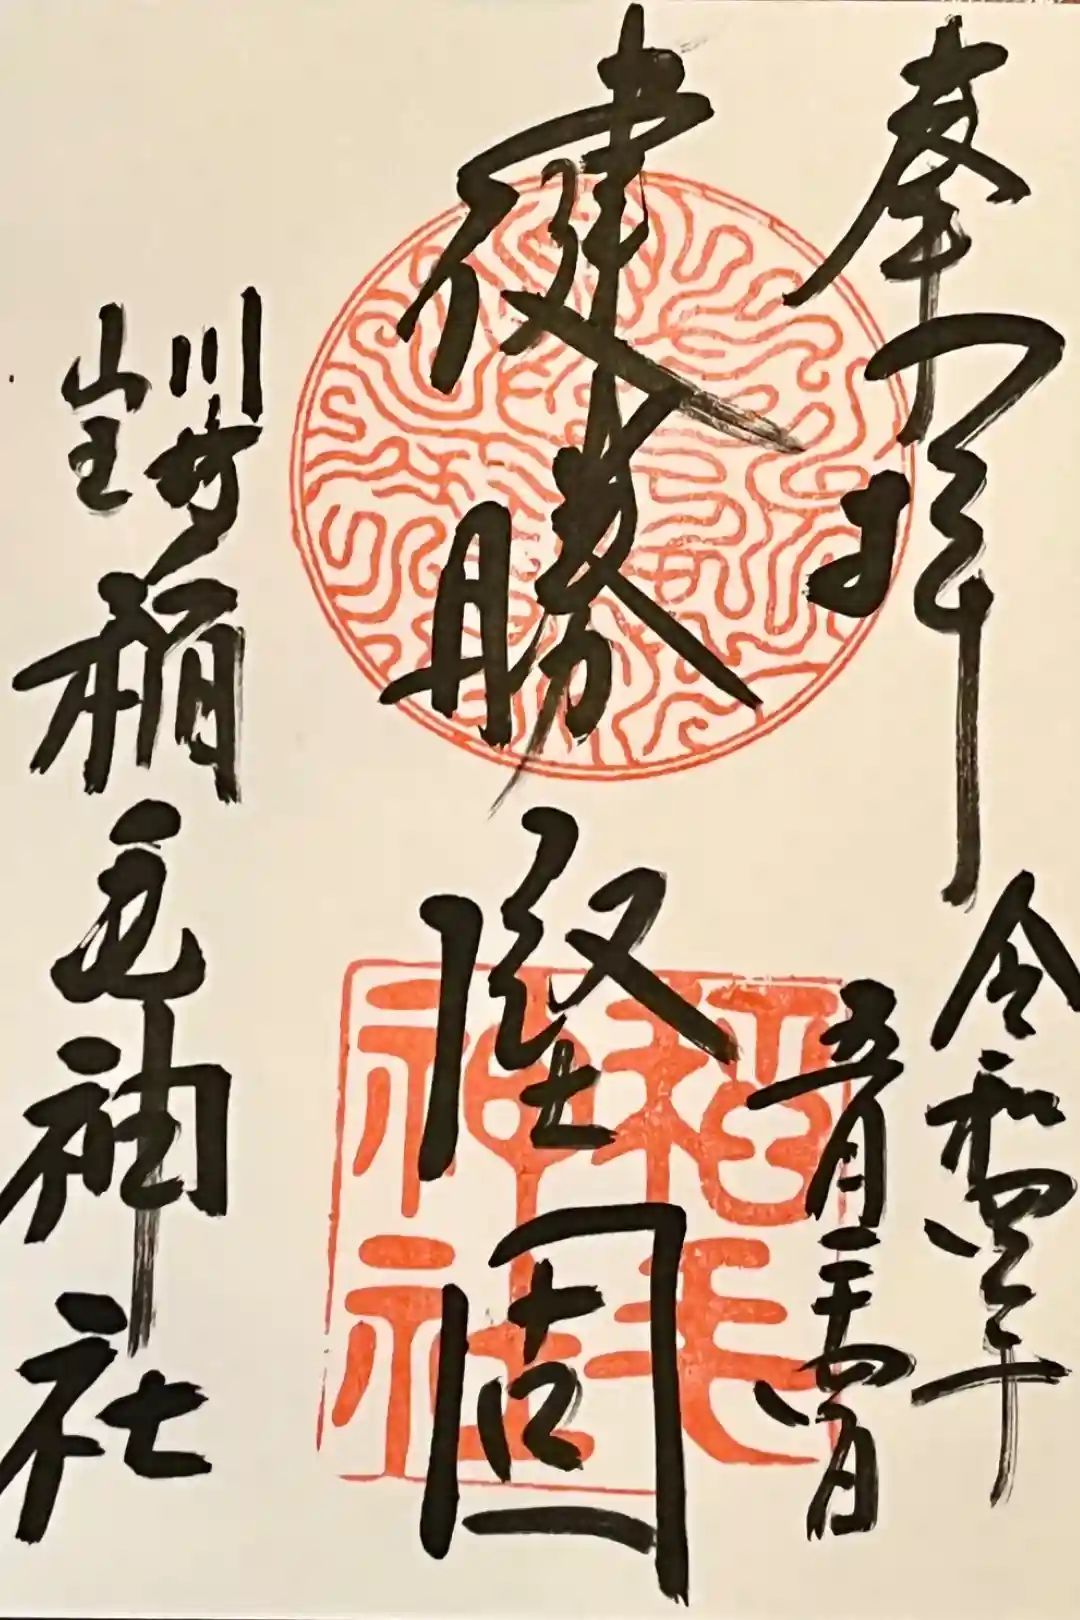 奉拝
令和四年
五月二十四日
健勝
堅固
川崎
山王
稲毛神社
稲毛
神社